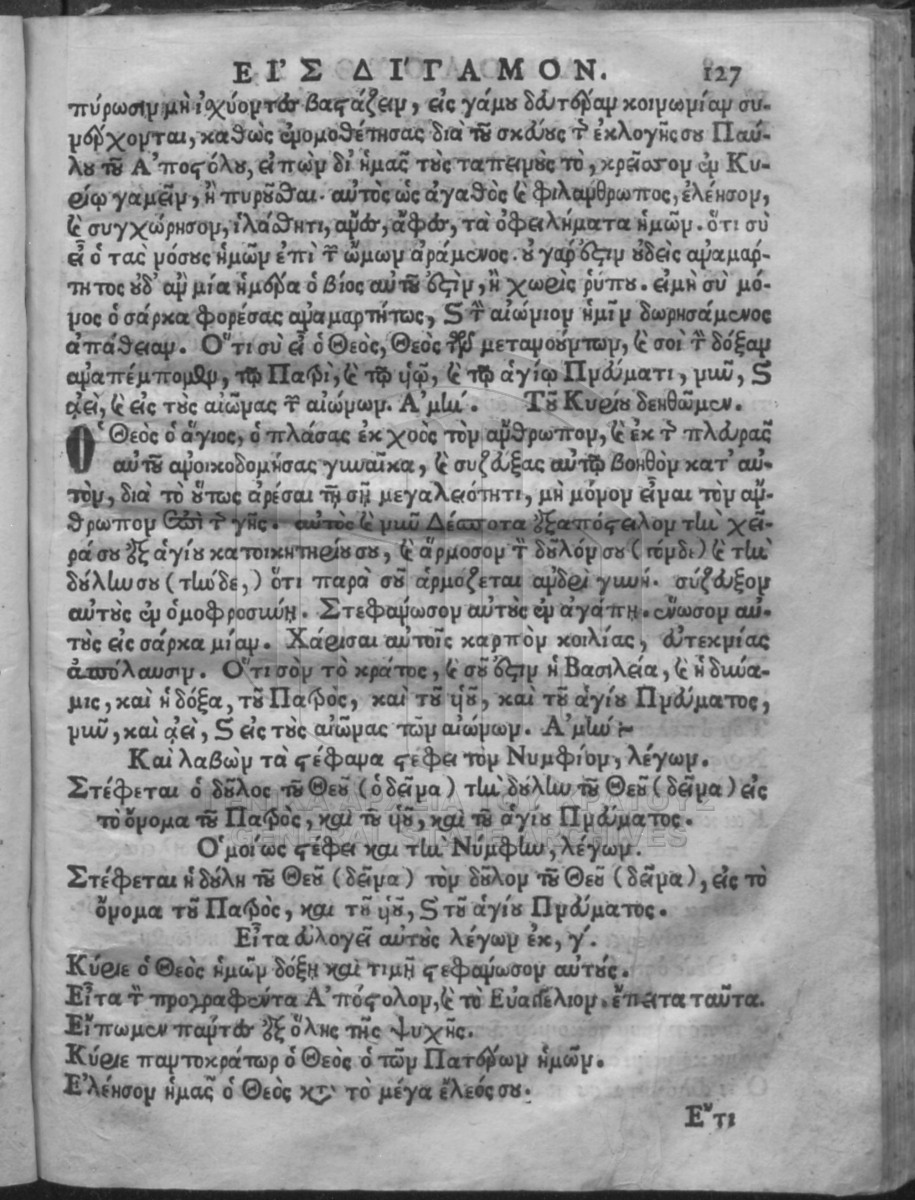 ΕΙ'Σ ΔΙ'ΓΑΜΟΝ. 127
πύρωσιν μὴ ἰχύοντες βαστάζειν, εἰς γάμου δευτέραν κοινωνίαν συ-
νέρχονται, καθὼς ἐνομοθέτησας διὰ τοῦ σκεύους τῆς ἐκλογῆς σου Παύ-
λου τοῦ Ἀποστόλου, εἰπὼν δι' ἡμᾶς τοὺς ταπεινοὺς τὸ, κρεῖσσον ἐν Κυ-
ρίῳ γαμεῖν, ἢ πυροῦσθαι. αὐτὸς ὡς ἀγαθὸς καὶ φιλάνθρωπος, ἐλέησον,
καὶ συγχώρησον, ἱλάσθητι, ἄνες, ἄφες, τὰ ὀφειλήματα ἡμῶν. ὅτι σὺ
εἶ ὁ τὰς νόσους ἡμῶν ἐπὶ τῶν ὤμων ἀράμενος. οὐ γάρ ἐστιν οὐδεὶς ἀναμάρ-
τητος οὐδ' ἂν μία ἡμέρα ὁ βίος αὐτοῦ ἐστὶν, ἢ χωρὶς ῥύπου. εἰμὴ σὺ μό-
νος ὁ σάρκα φορέσας ἀναμαρτήτως, καὶ τὴν αἰώνιον ἡμῖν δωρησάμενος
ἀπάθειαν. Ὅτι σὺ εἶ ὁ Θεὸς, Θεὸς τῶν μετανοούντων, καὶ σοὶ τὴν δόξαν
ἀναπέμπομεν, τῷ Πατρὶ, καὶ τῷ ὑιῷ, καὶ τῷ ἁγίῳ Πνεύματι, νῦν, καὶ
ἀεὶ, καὶ εἰς τοὺς αἰῶνας τῶν αἰώνων. Ἀμήν. Τοῦ Κυρίου δεηθῶμεν.
Ὁ Θεὸς ὁ ἅγιος, ὁ πλάσας ἐκ χοὸς τὸν ἄνθρωπον, καὶ ἐκ τῆς πλευρᾶς
αὐτοῦ ἀνοικοδομήσας γυναῖκα, καὶ συζεύξας αὐτῷ βοηθὸν κατ' αὐ-
τὸν, διὰ τὸ οὕτως ἀρέσαι τῇ σῇ μεγαλειότητι, μὴ μόνον εἶναι τὸν ἄν-
θρωπον ἐπὶ τῆς γῆς. αὐτὸς καὶ νῦν Δέσποτα ἐξαπόστειλον τὴν χεῖ-
ρά σου ἐξ ἁγίου κατοικητηρίου σου, καὶ ἅρμοσον τὸν δοῦλόν σου (τόνδε) καὶ τὴν
δούλην σου (τήνδε,) ὅτι παρὰ σοῦ ἁρμόζεται ἀνδρὶ γυνή. σύζευξον
αὐτοὺς ἐν ὁμοφροσύνῃ. Στεφάνωσον αὐτοὺς ἐν ἀγάπῃ. ἕνωσον αὐ-
τοὺς εἰς σάρκα μίαν. Χάρισαι αὐτοῖς καρπὸν κοιλίας, εὐτεκνίας
ἀπόλαυσιν. Ὅτι σὸν τὸ κράτος, καὶ σοῦ ἐστιν ἡ Βασιλεία, καὶ ἡ δύνα-
μις, καὶ ἡ δόξα, τοῦ Πατρὸς, καὶ τοῦ ὑιοῦ, καὶ τοῦ ἁγίου Πνεύματος,
νῦν, καὶ ἀεὶ, καὶ εἰς τοὺς αἰῶνας τῶν αἰώνων. Ἀμήν :~
Καὶ λαβὼν τὰ στέφανα στέφει τὸν Νυμφίον, λέγων.
Στέφεται ὁ δοῦλος τοῦ Θεοῦ (ὁ δεῖνα) τὴν δούλην τοῦ Θεοῦ (δεῖνα) εἰς
τὸ ὄνομα τοῦ Πατρὸς, καὶ τοῦ ὑιοῦ, καὶ τοῦ ἁγίου Πνεύματος.
Ὁμοίως στέφει καὶ τὴν Νύμφην, λέγων.
Στέφεται ἡ δούλη τοῦ Θεοῦ (δεῖνα) τὸν δοῦλον τοῦ Θεοῦ (δεῖνα), εἰς τὸ
ὄνομα τοῦ Πατρὸς, καὶ τοῦ ὑιοῦ, καὶ τοῦ ἁγίου Πνεύματος.
Εἶτα εὐλογεῖ αὐτοὺς λέγων ἐκ, γ'.
Κύριε ὁ Θεὸς ἡμῶν δόξῃ καὶ τιμῇ στεφάνωσον αὐτούς.
Εἶτα τὸν προγραφέντα Ἀπόστολον, καὶ τὸ Εὐαγγέλιον. ἔπειτα ταῦτα.
Εἴπωμεν πάντες ἐξ ὅλης τῆς ψυχῆς.
Κύριε παντοκράτωρ ὁ Θεὸς ὁ τῶν Πατέρων ἡμῶν.
Ἐλέησον ἡμᾶς ὁ Θεὸς κτ τὸ μέγα ἔλεός σου.
Ἔτι
ΓΕΝΙΚΑ ΑΡΧΕΙΑ ΤΟΥ ΚΡΑΤΟΥΣ
GENERAL STATE ARCHIVES